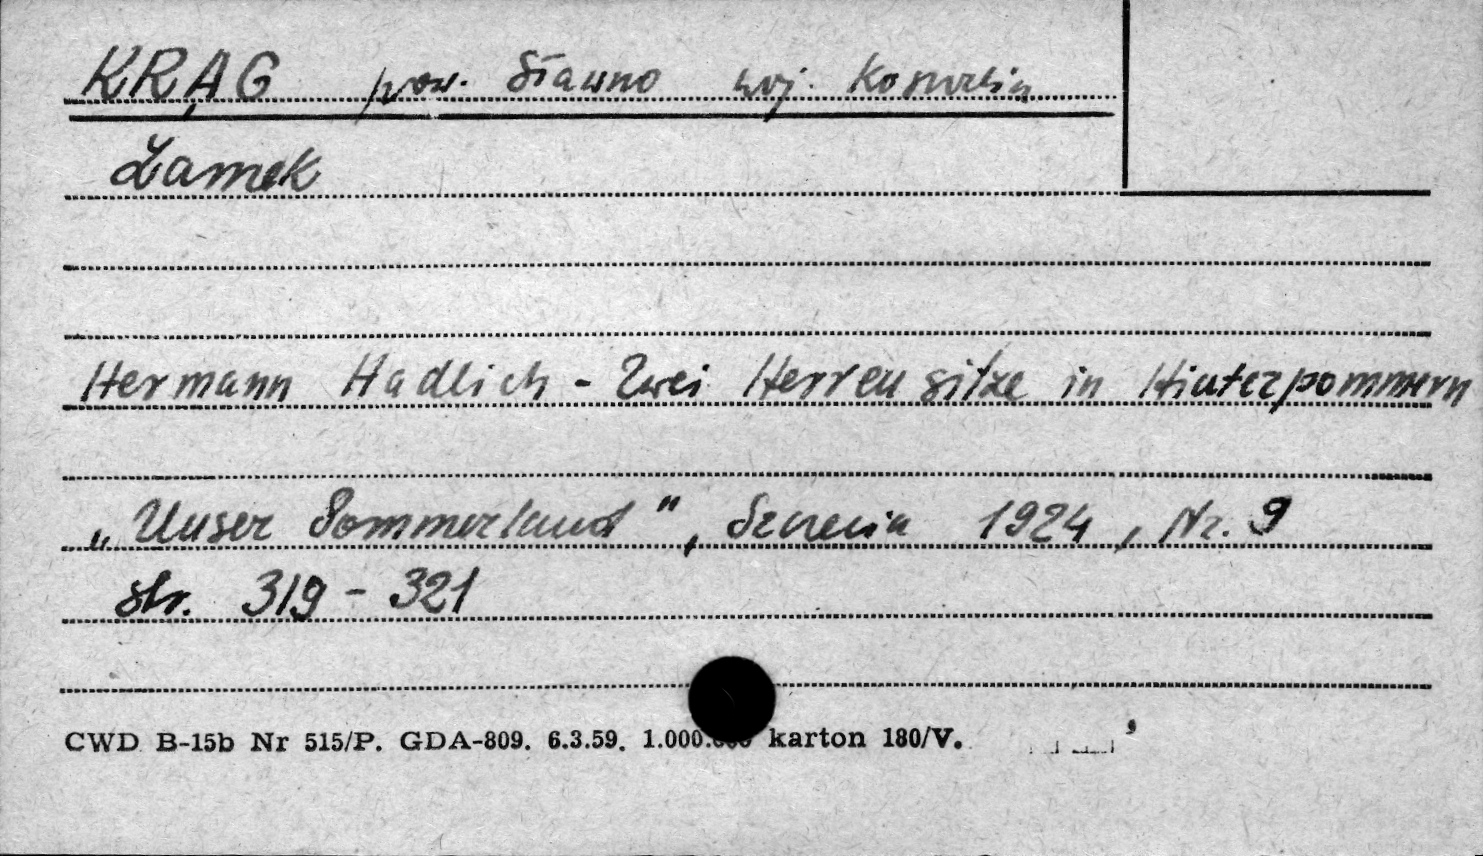 KRĄG pow. Sławno woj. Koszalin
Zamek
Hermann Hadlich - Zwei Herrensitze in Hinterpommern
„Unser Pommerland", Szczecin 1924, Nr. 9
str. 319 - 321
CWD B-15b Nr 515/P. GDA-809. 6.3.59. 1.000.000 karton 180/V.